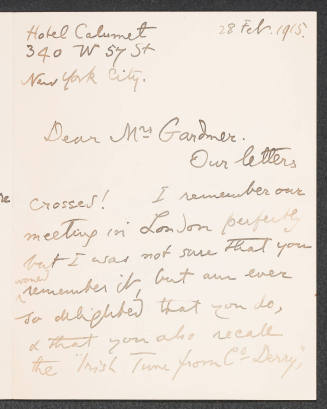 Hotel Calumet 28 Feb. 1915.
340 W 57 St
New York City.
Dear Mrs Gardner.
Our letters
crossed! I remember our
meeting in London perfectly
but I was not sure that you
would
remember it, but am ever
so delighted that you do,
& that you also recall
the "Irish Tune from Co Derry",